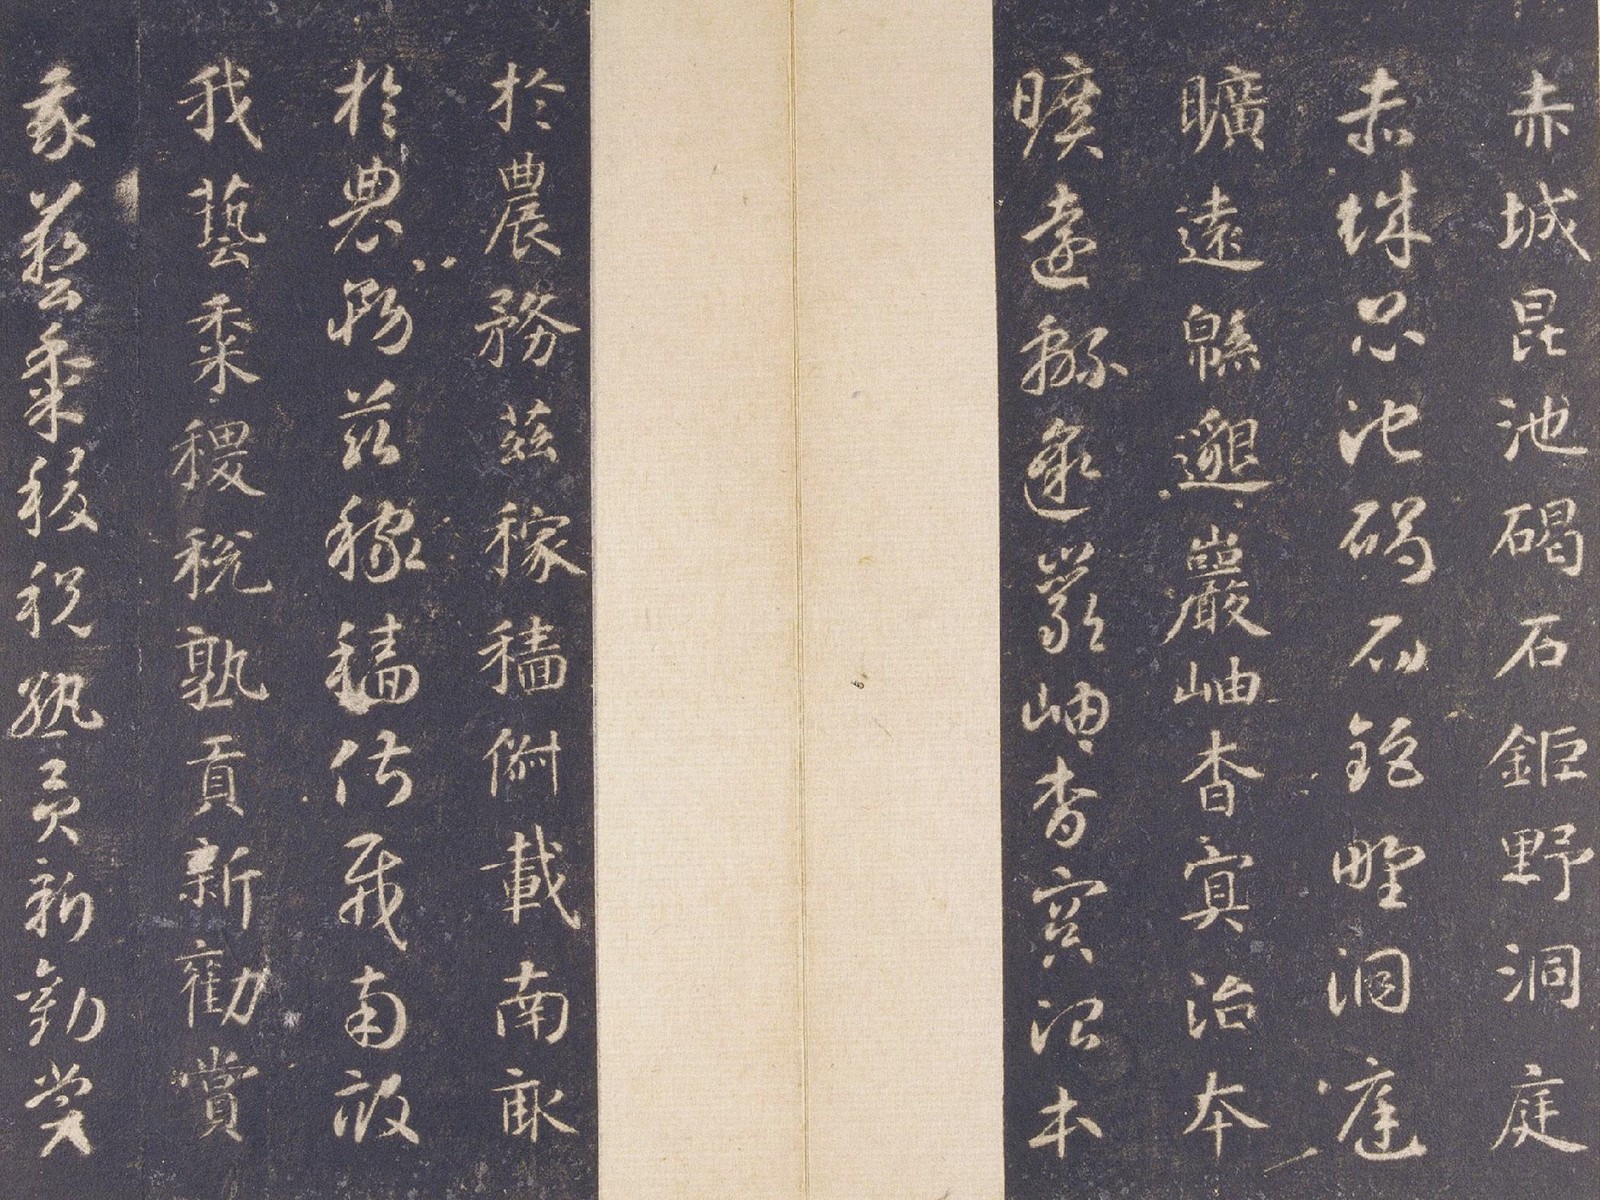 赤城昆池碣石鉅野洞庭
赤城昆池碣石鉅野洞庭
曠遠緜邈巖岫杳冥治本
曠遠緜邈巖岫杳冥治本
於農務茲稼穡俶載南畝
於農務茲稼穡俶載南畝
我藝黍稷稅熟貢新勸賞
我藝黍稷稅熟貢新勸賞